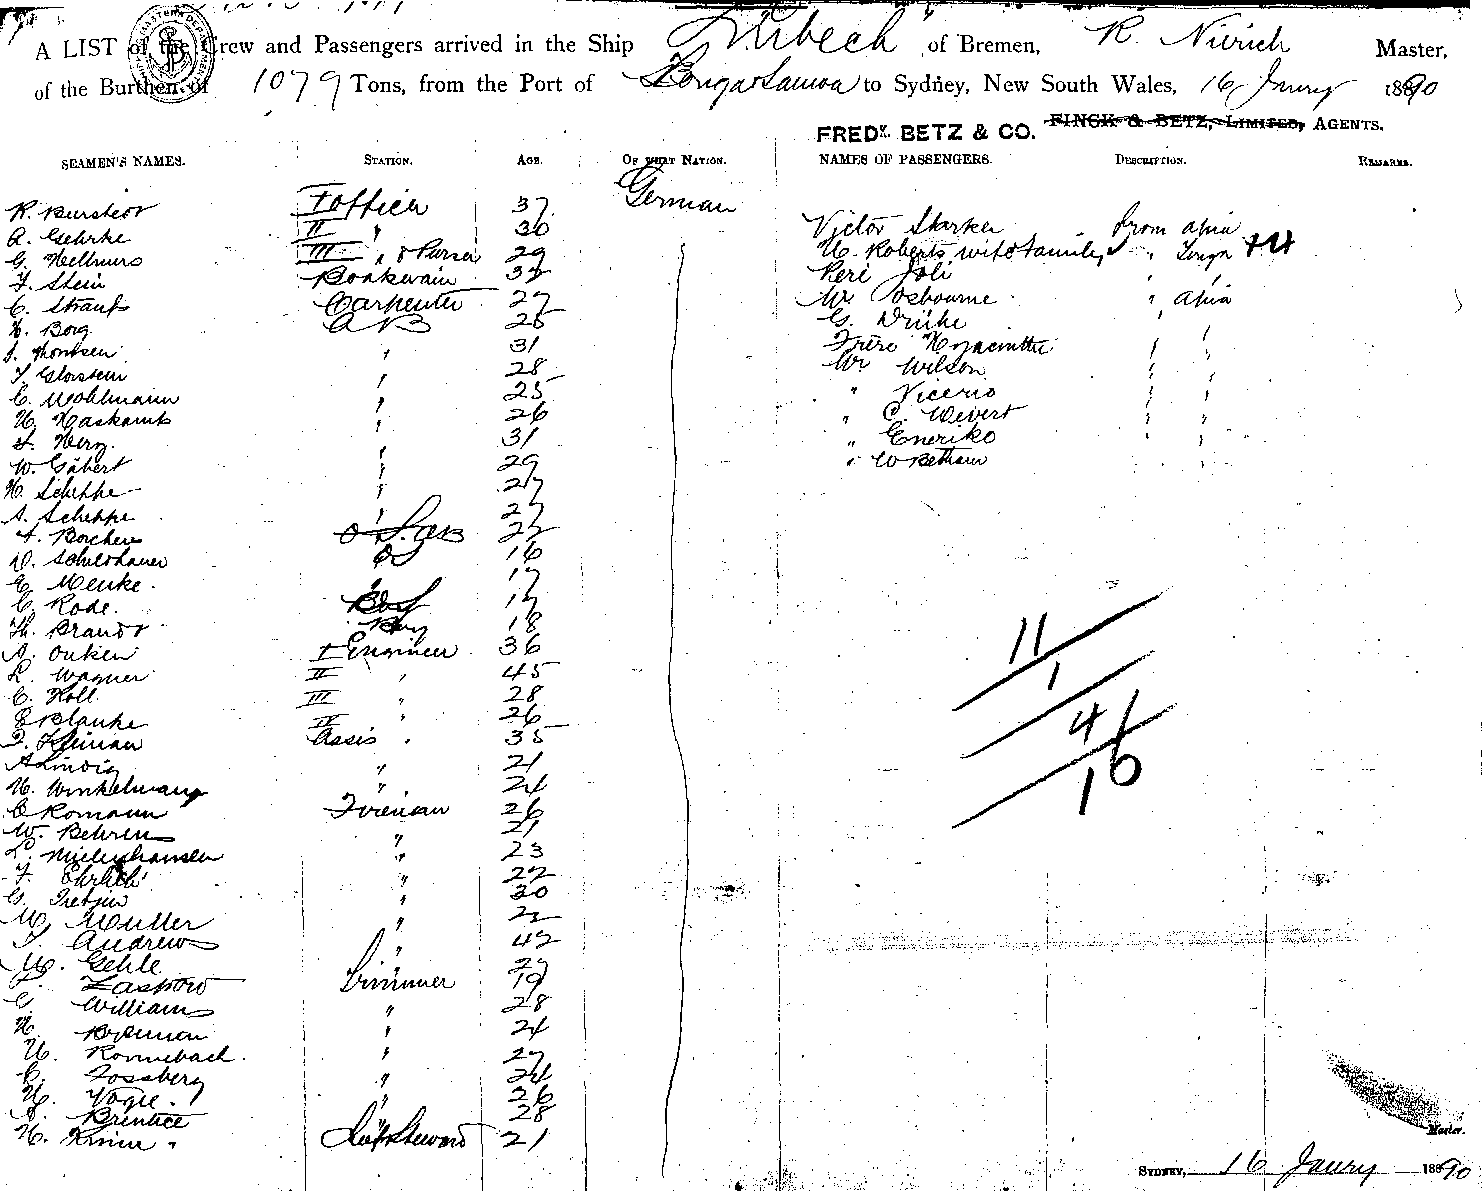 A LIST of the Crew and Passengers arrived in the Ship "Lübeck" of Bremen, R. Nierich Master,
of the Burthen of 1079 Tons, from the Port of Tonga Samoa to Sydney, New South Wales, 16 Janry 1890
FREDK. BETZ & CO. FINCK & BETZ, LIMITED, AGENTS.
SEAMEN'S NAMES. STATION. AGE. OF WHAT NATION. NAMES OF PASSENGERS. DESCRIPTION. REMARKS.
R. I Officer 37 German
A. Gehrke II " 30 Victor Starker from Apia
G. III " & Purser 29 H. Roberts, wife & family " Tonga
F. Stein Boatswain 32 Peri Joli
C. Strauss Carpenter 27 Mr Osbourne " Apia
H. Borg AB 25 G. Drüke
J. Thomsen " 31 Frère Hyacinthe " "
F. Glorstein " 28 Mr Wilson " "
C. Mohlmann " 25 " Vicerio " "
H. Haskamp " 26 " C. Wevert " "
" 31 " Eneriko " "
W. Gäbert " 29 " W Betham
H. Scheppe " 27
A. Scheppe " 27
Borchers O.S. AB 22
D. Schildhauer OS 16
E. Menke. " 17
C. Rode. Boy 17
Th. Brandt Boy 18
A. Onken I Engineer 36
L. Wagner II " 45
C. Holl III " 28
E Blanke IV " 26
Assis " 35
A Lindig " 21
H. Winkelmann " 24
C Romann Fireman 26
W. Behrens " 21
" 23
F. Ehrlich " 22
G. Tietjen " 30
M. Muller " 22
Andrews " 42
M. Gehle " 27
Zastrow Trimmer 19
G. Williams " 28
H. " 24
H. Ronnebach. " 27
C. Fossberg " 24
H. Voge. " 26
Brentice " 28
H. Steward 21
11
1
4
16
Master.
SYDNEY, 16 Janry 1890